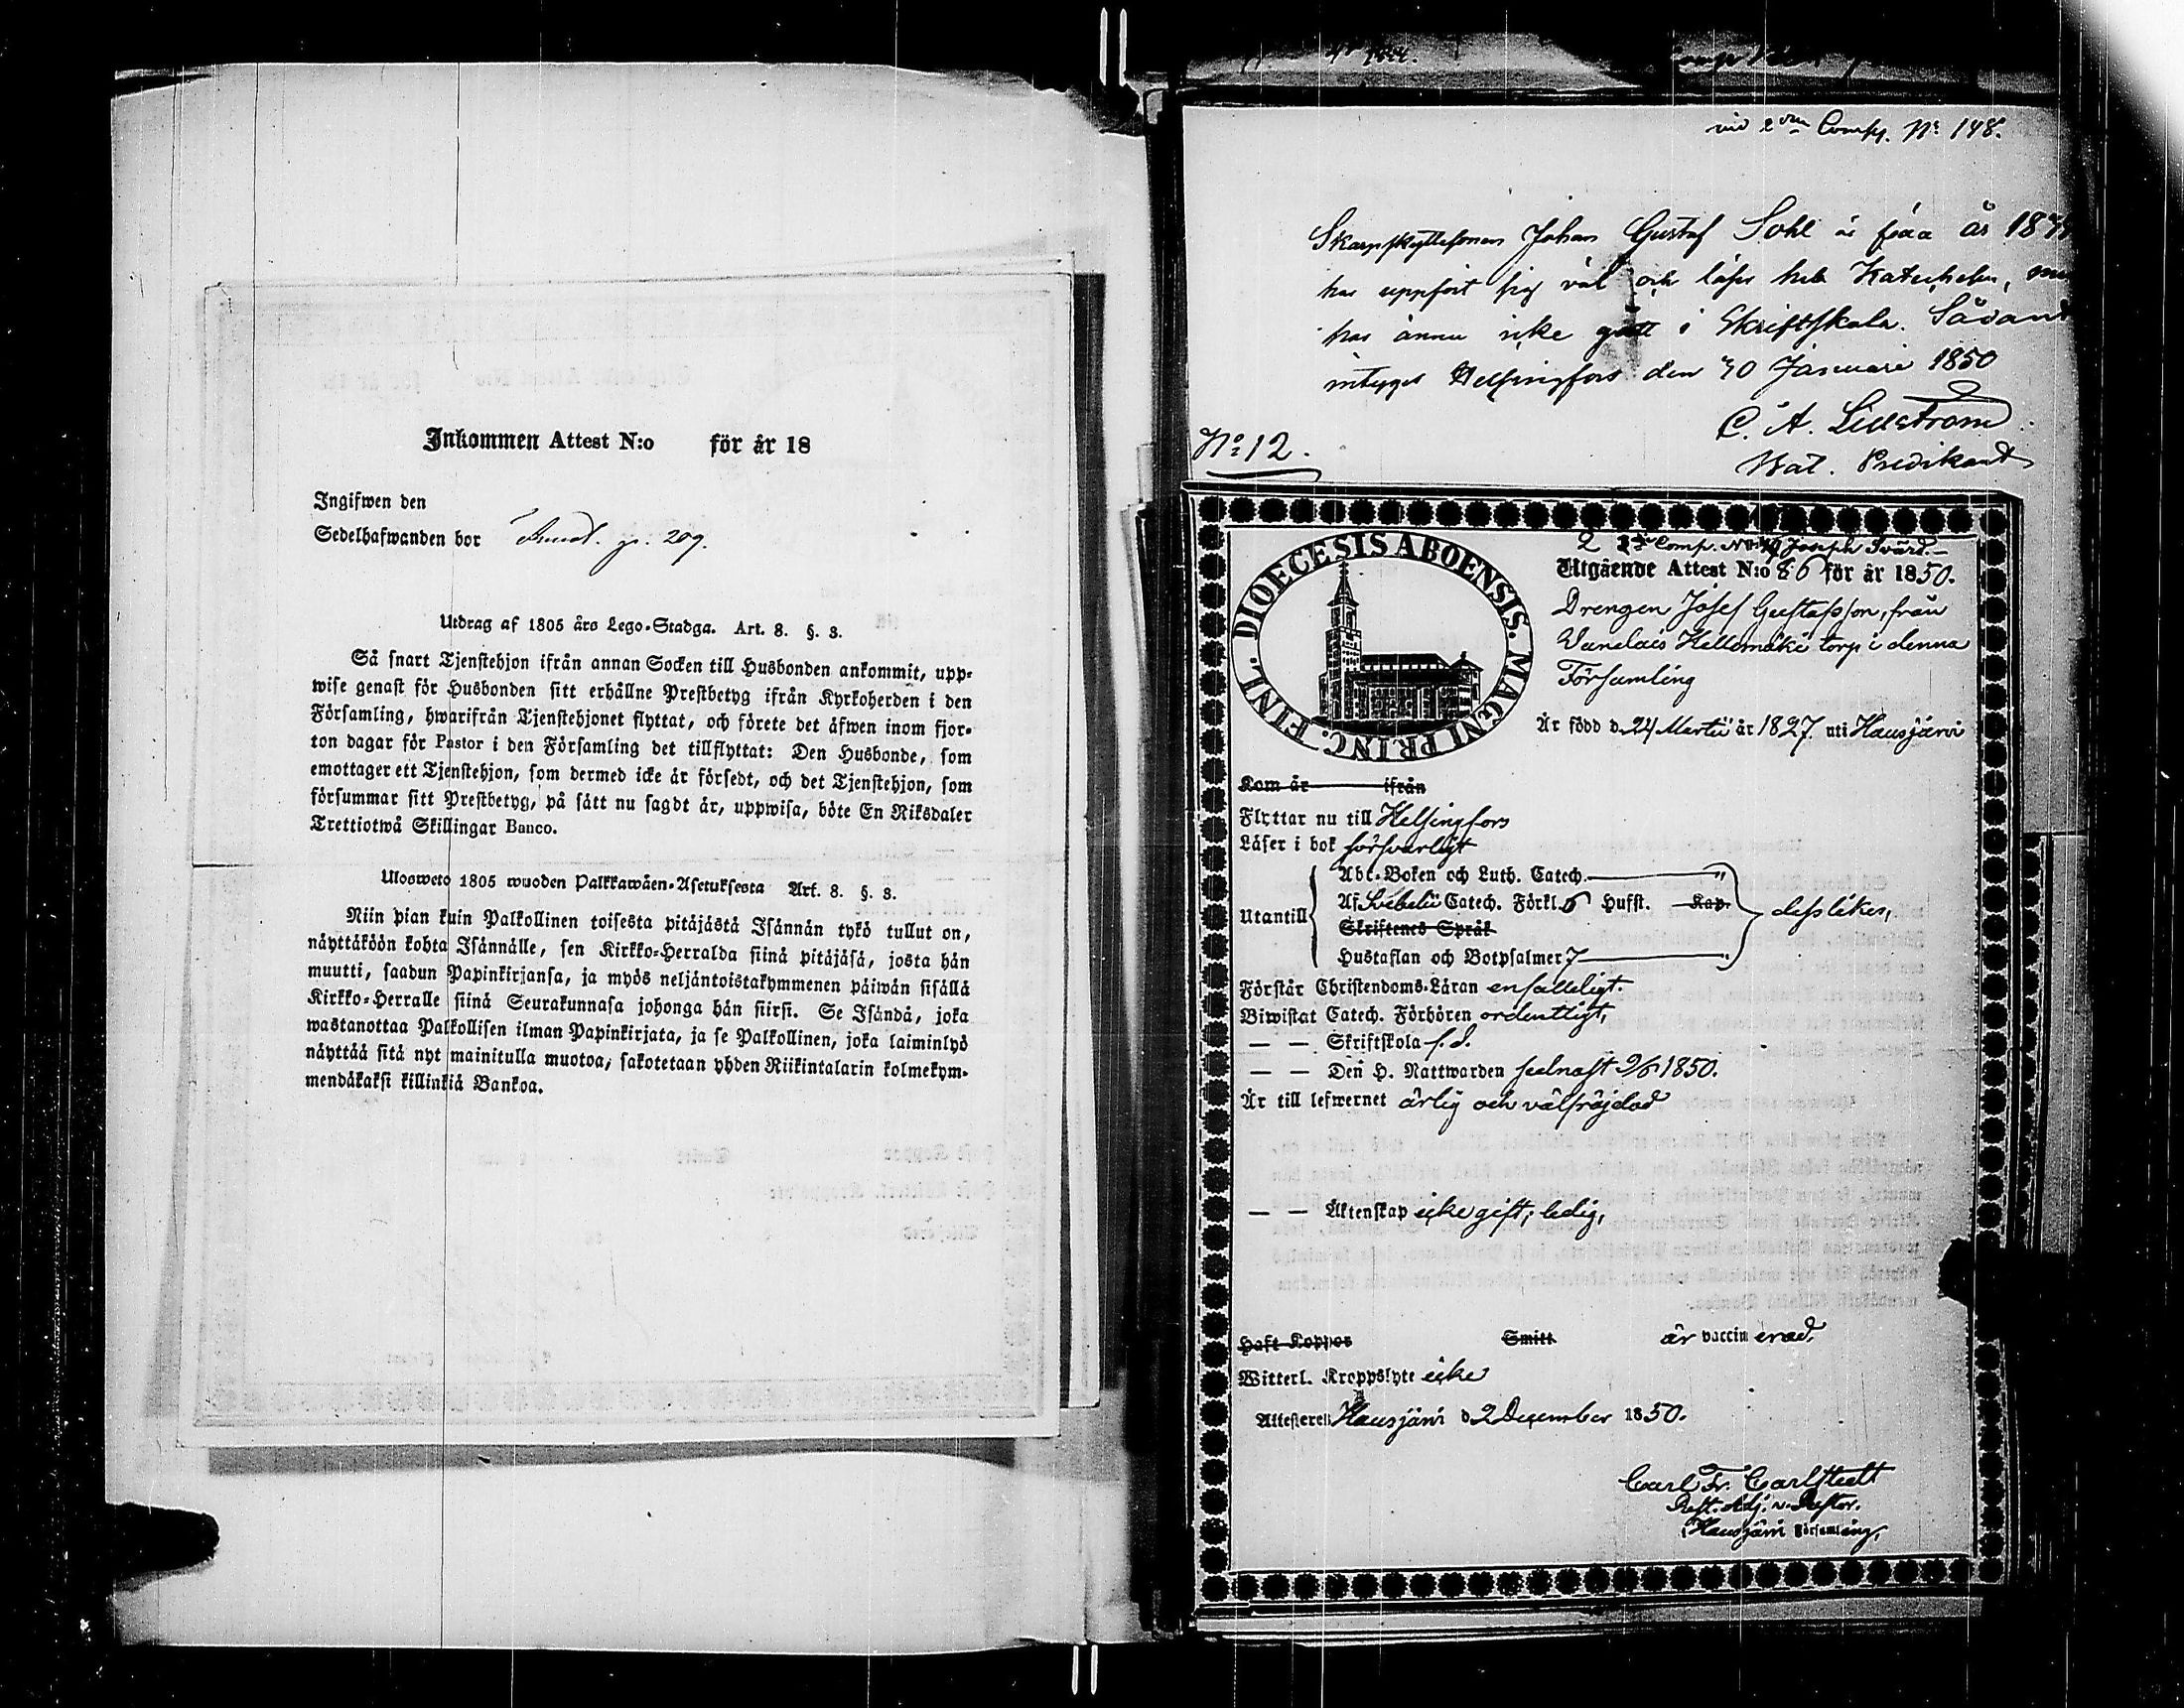 Inkommen Attest N:o för år 18
Ingifwen den
Sedelhafwanden bor 209.
Utdrag af 1805 års Lego-Stadga. Art. 8. §. 3.
Så snart Tjenstehjon ifrån annan Socken till Husbonden ankommit, upp-
wise genast för Husbonden sitt erhållne Prestbetyg ifrån Kyrkoherden i den
Församling, hwarifrån Tjenstehjonet flyttat, och förete det äfwen inom fjor-
ton dagar för Pastor i den Församling det tillflyttat: Den Husbonde, som
emottager ett Tjenstehjon, som dermed icke är försedt, och det Tjenstehjon, som
försummar sitt Prestbetyg, på sätt nu sagdt är, uppwisa, böte En Riksdaler
Trettiotwå Skillingar Banco.
Ulosweto 1805 wuoden Palkkawäen-Asetuksesta Art. 8. §. 3.
Niin pian kuin Palkollinen toisesta pitäjästä Isännän tykö tullut on,
näyttäköön kohta Isännälle, sen Kirkko-Herralda siinä pitäjäsä, josta hän
muutti, saadun Papinkirjansa, ja myös neljäntoistakymmenen päiwän sisällä
Kirkko-Herralle siinä Seurakunnasa johonga hän siirsi. Se Isändä, joka
wastanottaa Palkollisen ilman Papinkirjata, ja se Palkollinen, joka laiminlyö
näyttää sitä nyt mainitulla muotoa, sakotetaan yhden Riikintalarin kolmekym-
mendäkaksi killinkiä Bankoa.
vid 2dra Comp. No 148.
Skarpskyttesonen Johan Gustaf Sohl är född år 18
har uppfört sig väl och läser hela Katechesen,
har ännu icke gått i Skriftskola. Sådant
intygas Helsingfors den 30 Januari 1850
C. A. Lidström
Bat. Predikant
No 12.
2 Comp. No Joseph Svärd.
DIOECESIS ABOENSIS. MAGNI PRINC. FINL.
Utgående Attest N:o 86 för år 1850.
Drengen Josef Gustafsson, från
Hellemäki torp i denna
Församling
Är född d. 24 Martii år 1827 uti Hausjärvi
Kom år ifrån
Flyttar nu till Helsingfors
Läser i bok försvarligt
Utantill
Abc-Boken och Luth. Catech. "
Af Svebelii Catech. Förkl. 5 Hufst. Kap.
Skriftenes Språk
Hustaflan och Botpsalmer 7
dess likes,
Förstår Christendoms-Läran enfalleligt.
Biwistat Catech. Förhören ordentligt,
— — Skriftskola s. d.
— — Den H. Nattwarden sednast 9/6 1850.
Är till lefwernet ärlig och välfräjdad
— — Äktenskap icke gift; ledig,
Haft Koppor Smitt är vaccinerad.
Witterl. Kroppslyte icke
Attesterer Hausjärvi d. 2 December 1850.
Carl Fr. Carlstedt
Past. Adj. v. Pastor.
i Hausjärvi Församling,